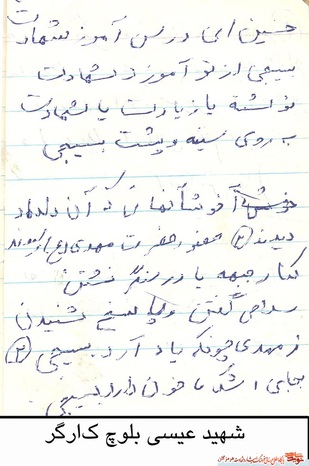 حسین ای درس آموز شهادت
بسیجی از تو آموزد شهادت
نوشته یا زیارت یا شهادت
به روی سینه و پشت بسیجی
خوش آنانکه آن دلداد
دیدند (۲) حضور حضرت مهدی
کنار جبهه یا در سنگر نشستن
سلامی گفتن و پاسخ شنیدن
ز مهدی چونکه یاد آرد بسیجی (۲)
بجای اشک ها خون دارد بسیجی
شهید عیسی بلوچ کارگر